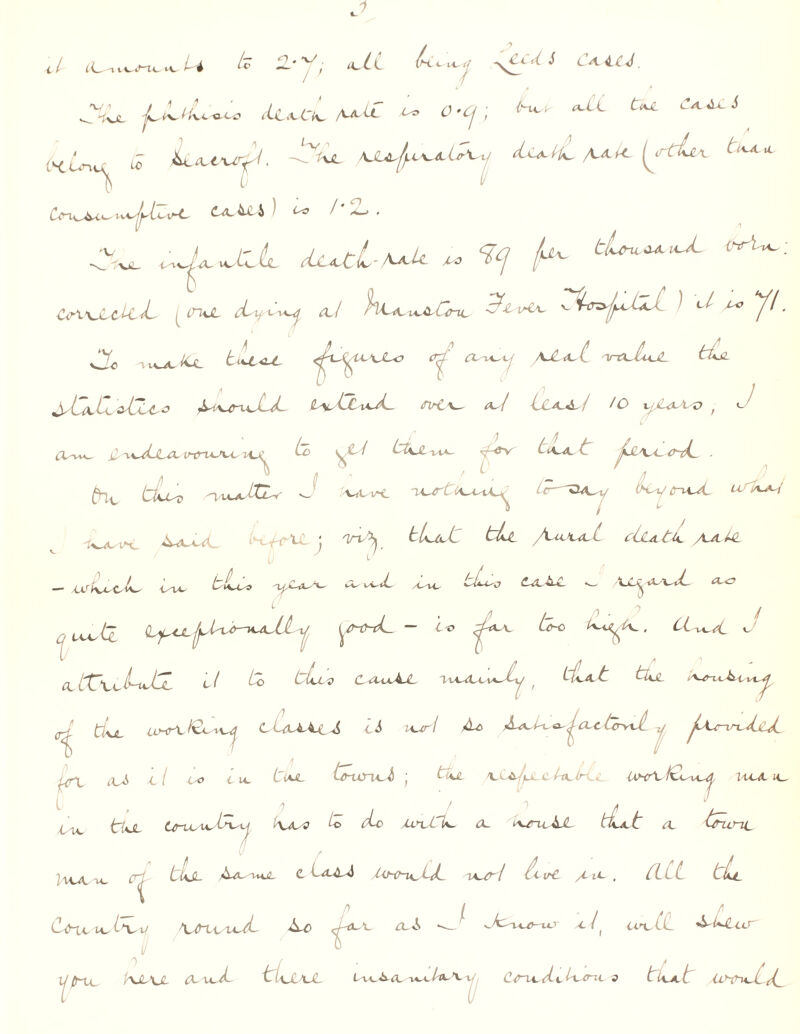 3
it amounts to 2.7; all being Leeds cases.
The phthisis death rate is 0.9; but all the cases
belong to Seacroft. The respiratory death rate (other than
consumptive cases) is 1.2.
The infantile death-rate is 89 per thousand born:
corrected (one dying at Manston Fever Hospital) it is 71.
To make these figures of any real value the
statistics should extend over at least 10 years, I
am endeavouring to get them for that period.
On this matter I have nothing to say beyond what
I have said before; viz. that the rural death rate
- which in this year and in this case I regard as
quite exceptionally good - is far too high. And I
attribute it to this cause mainly, that the housing
of the working classes is not so satisfactorily provided
for as it is in the towns; the respectable working man
in the country has to do with a house that a town
man of the same class would not live in. All the
country round so far as I know it, will shew
you here and there insanitary conditions that would